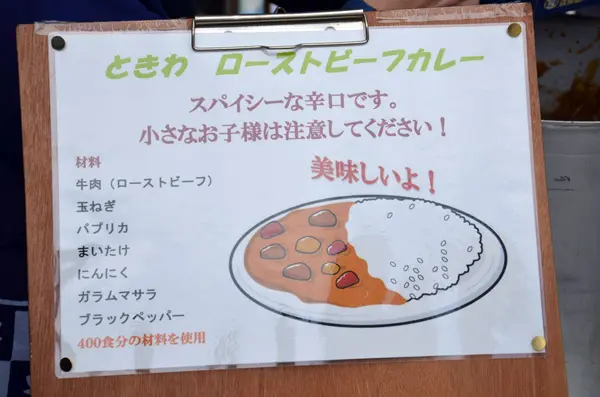 ときわ　ローストビーフカレー
スパイシーな辛口です。
小さなお子様は注意してください！
材料
美味しいよ！
牛肉（ローストビーフ）
玉ねぎ
パプリカ
まいたけ
にんにく
ガラムマサラ
ブラックペッパー
400食分の材料を使用